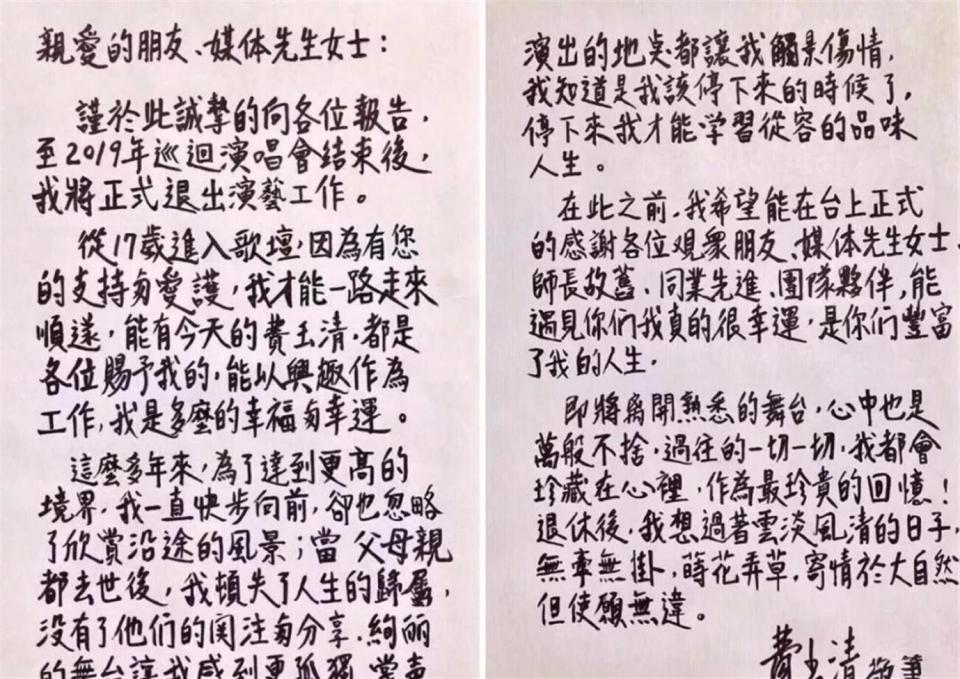 親愛的朋友、媒体先生女士：
謹於此誠摯的向各位報告，
至2019年巡迴演唱會結束後，
我將正式退出演藝工作。
從17歲進入歌壇，因為有您
的支持匄愛護，我才能一路走來
順遂，能有今天的費玉清，都是
各位賜予我的，能以興趣作為
工作，我是多麼的幸福匄幸運。
這麼多年來，為了達到更高的
境界，我一直快步向前，卻也忽略
了欣賞沿途的風景；當父母親
都去世後，我頓失了人生的歸屬，
没有了他們的関注匄分享，絢丽
的舞台讓我感到更孤獨，嘗壺
演出的地点都讓我觸景傷情，
我知道是我該停下來的時候了，
停下來我才能学習從容的品味
人生。
在此之前，我希望能在台上正式
的感謝各位観衆朋友、媒体先生女士、
師長故舊、同業先進、團隊夥伴，能
遇見你们我真的很幸運，是你们豐富
了我的人生，
即將离開熟悉的舞台，心中也是
萬般不捨，過往的一切一切，我都會
珍藏在心裡，作為最珍貴的回憶！
退休後，我想過著雲淡風清的日子，
無牽無掛，蒔花弄草，寄情於大自然
但使願無違。
費玉清 敬筆